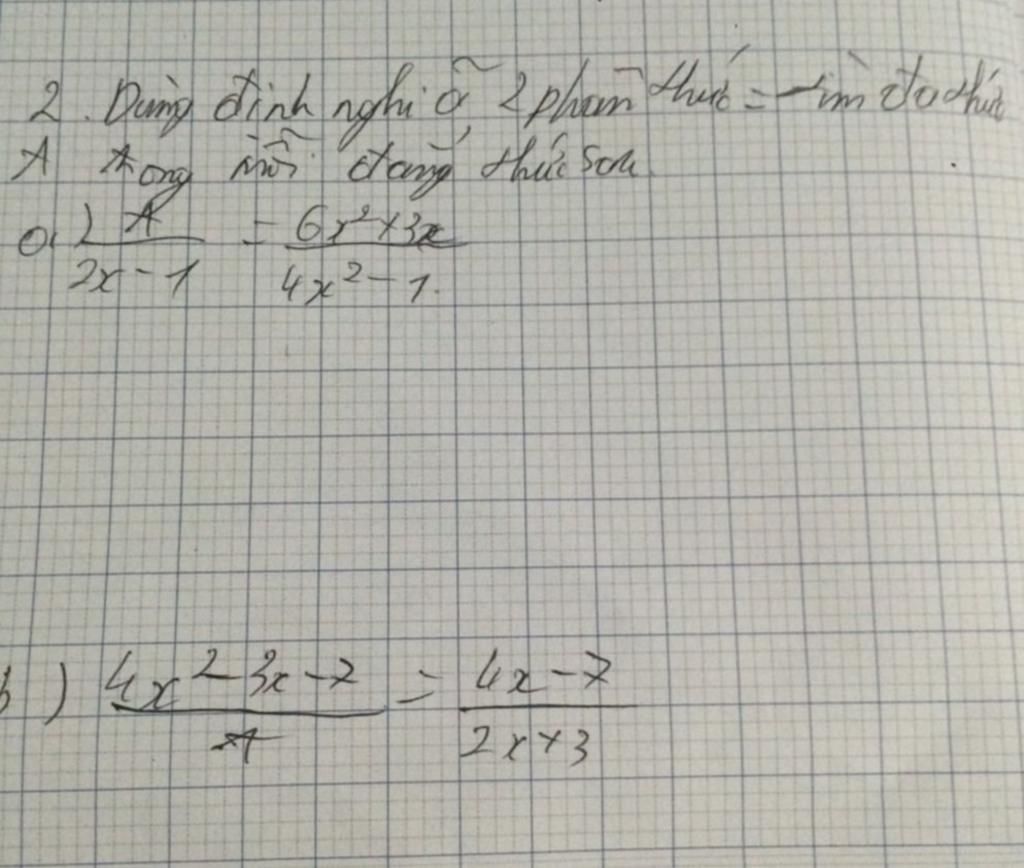 2. Dùng định nghĩa 2 phân thức = tìm đa thức
A trong mỗi đẳng thức sau
a) A / 2x - 1 = 6x² + 3x / 4x² - 1.
b) 4x² - 3x - 7 / A = 4x - 7 / 2x + 3